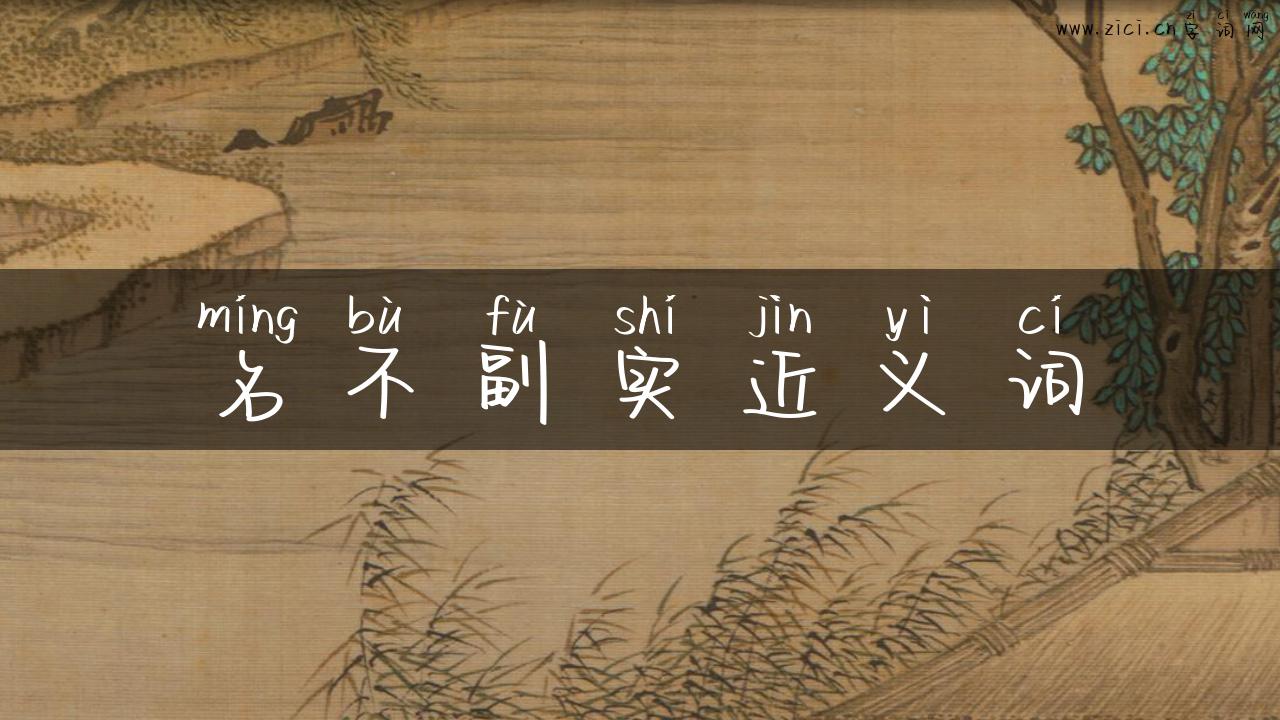 zì cí wǎng
www.zici.cn字词网
míng bù fù shí jìn yì cí
名不副实近义词